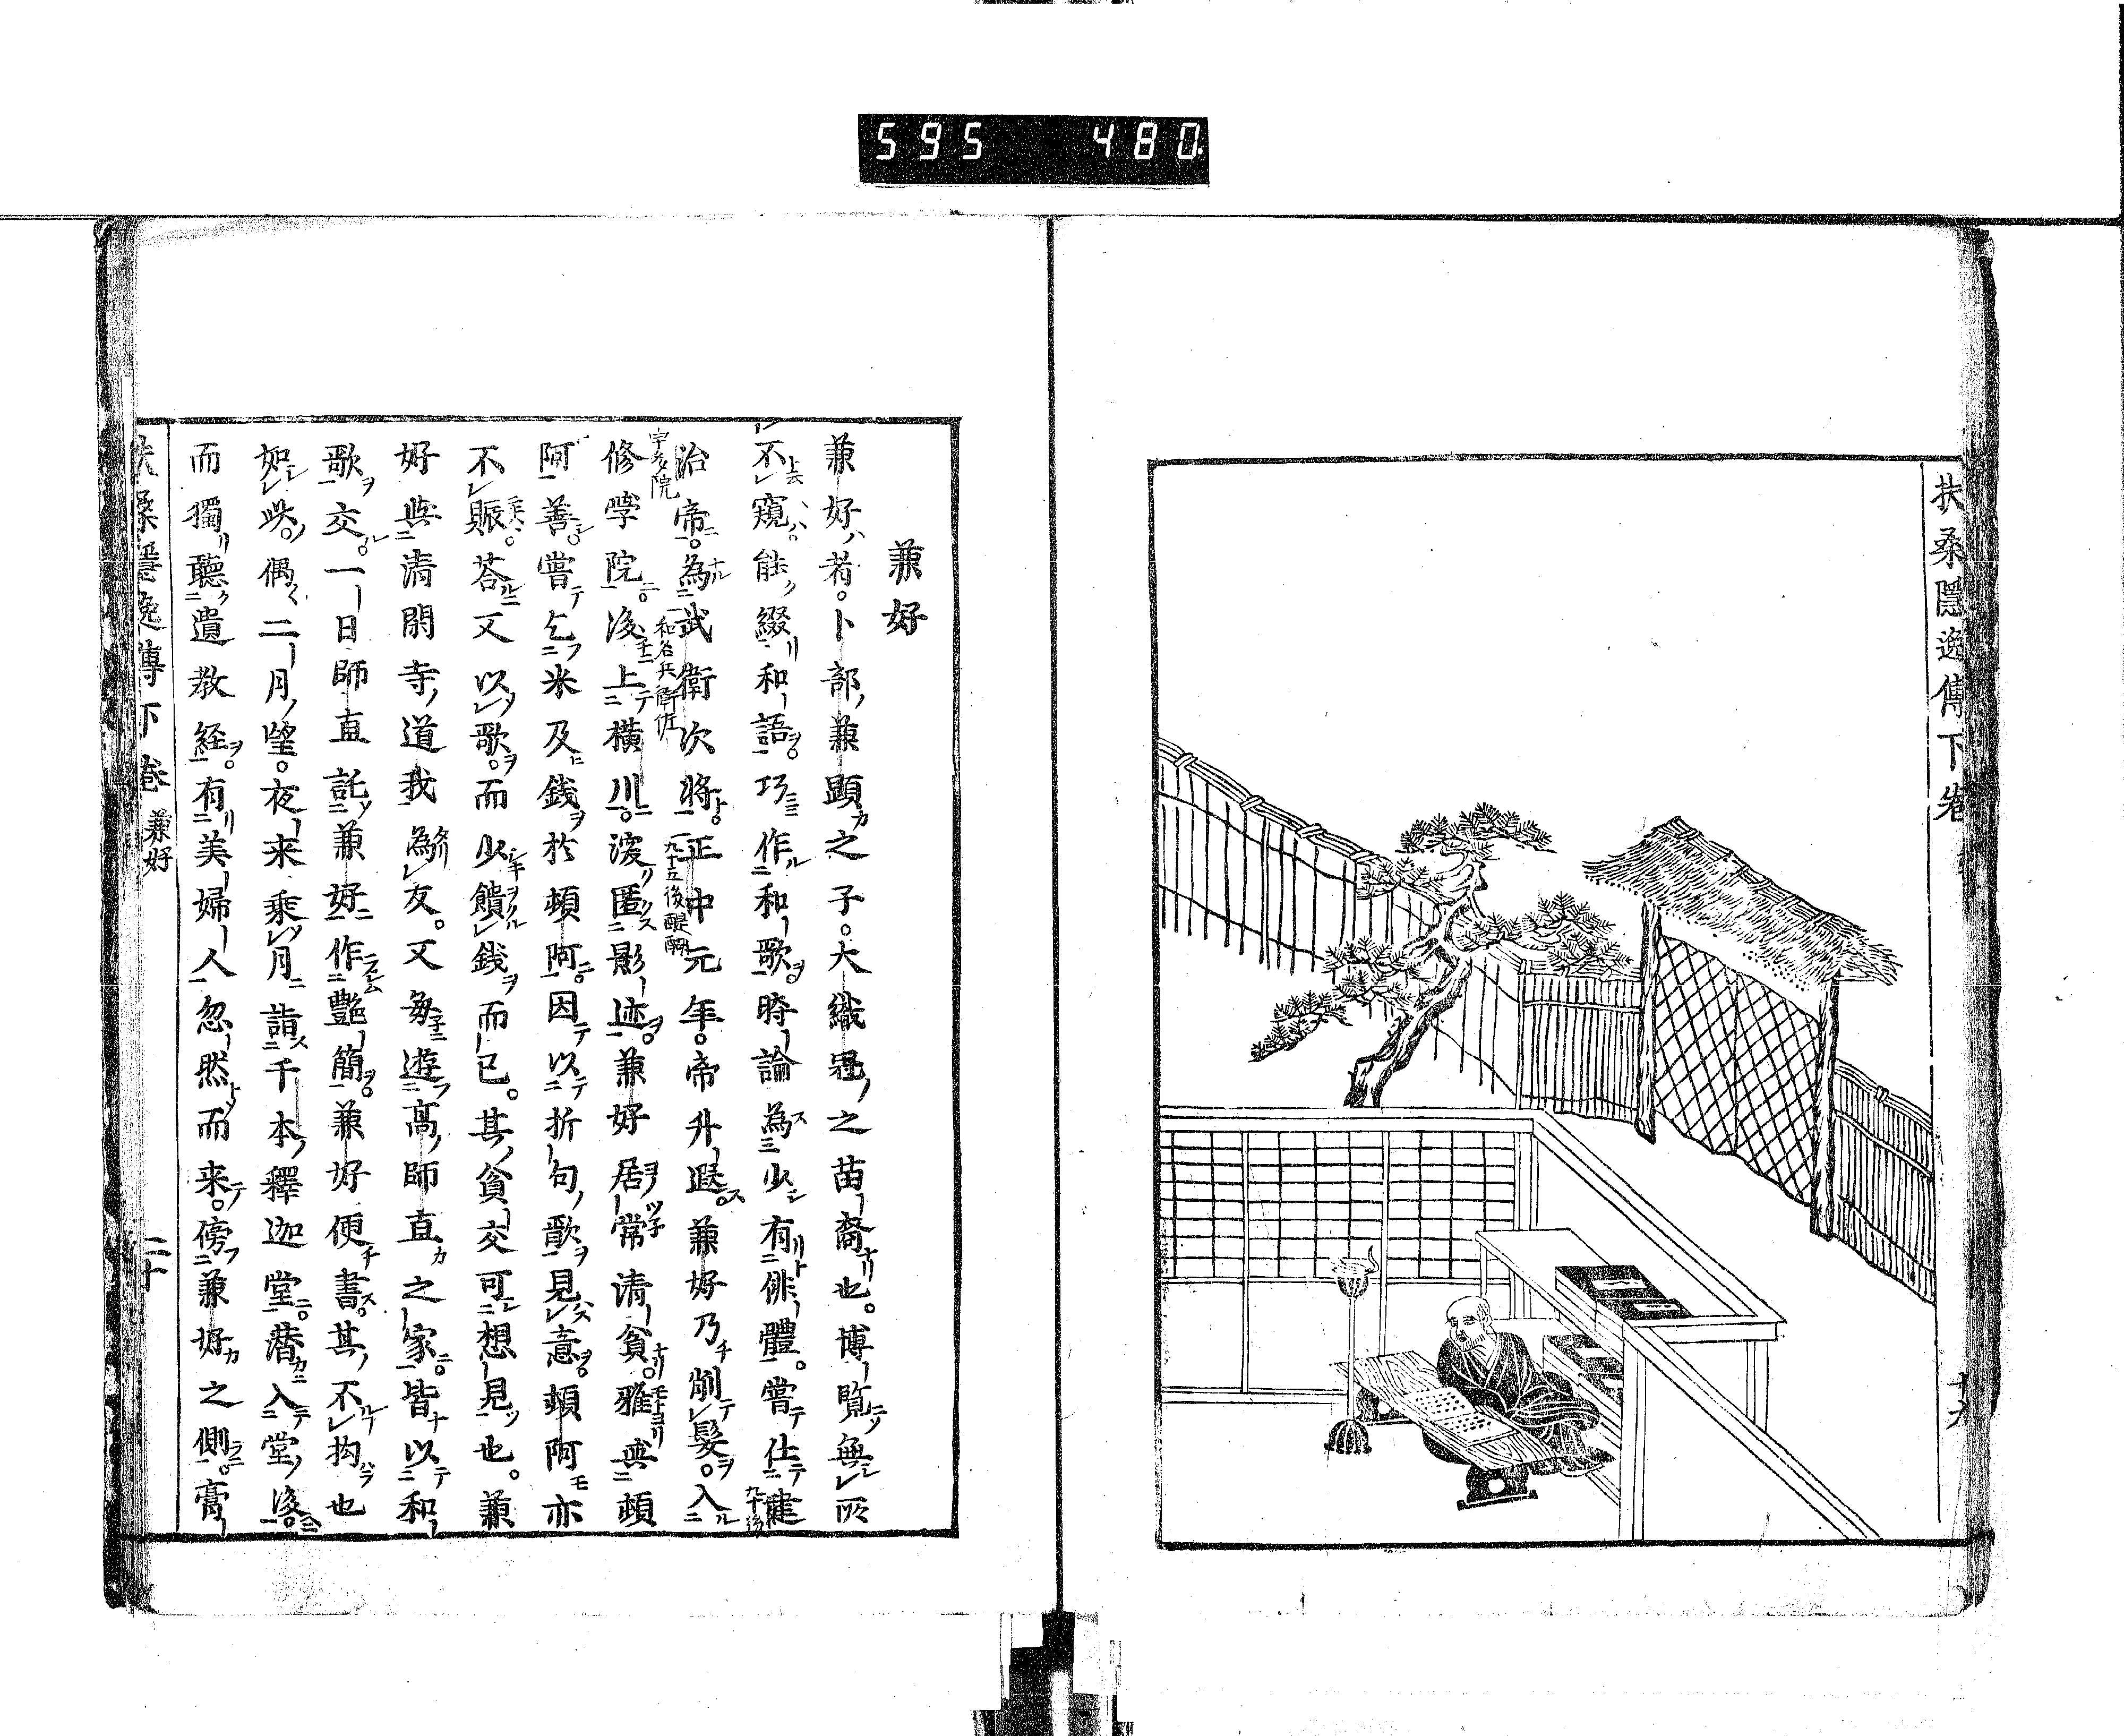 595 480
扶桑隱逸傳下卷
十九
兼好
兼好ハ者。卜部ノ兼顕カ之子。大織冠ノ之苗裔ナリ也。博覧ニノ無レシ所
不レ窺ハ。能ク綴リ和語ヲ。巧ミニ作ル和歌ヲ。時論為ス少シ有リト俳體。嘗テ仕テ建
治帝ニ。為ナル武衛次将ト。正中元年。帝升遐ス。兼好乃チ削テ髮ヲ。入ル
修學院ニ。後チニ上テ横川ニ。深リ匿クス影迹ヲ。兼好居ヲ常ツ子清貧ナリ。雅モトヨリ與頓
阿善シ。嘗テ乞フ米及ヒ錢ヲ於頓阿ニ。因テ以テ折句ノ歌ヲ見ハス意ヲ。頓阿モ亦
不レ賑。荅ルニ又以ツ歌ヲ。而少シキ饋ヲクル錢ヲ而已。其ノ貧交可シ想見ツ也。兼
好與清閑寺ノ道我為リ友。又毎子ニ遊フ高ノ師直カ之家ニ。皆ナ以テ和
歌ヲ交ル。一日師直託ソ兼好ニ作ラシム艶簡ヲ。兼好便チ書ス。其ノ不ル拘ハラ也
如シ此ノ。偶〱二月ノ望。夜来乗ソ月ニ詣ス千本ノ釋迦堂ニ。潜カニ入テ堂ノ後ニ。
而獨リ聴ク遺教経ヲ。有リ美婦人忽然トソ而来テ。傍フ兼好カ之側ラニ。膏
上云
九十後
宇多院
和名兵衛佐
九十五後醍醐
扶桑隱逸傳下卷
兼好
二十